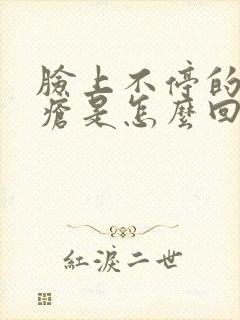 臉上不停的
瘡是怎麼回
紅淚二世